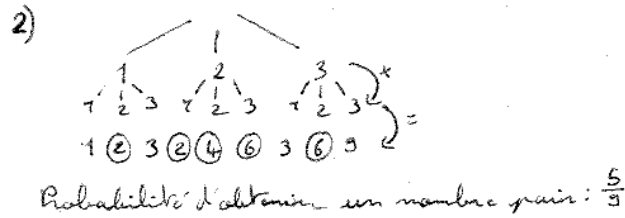 2)
1 2 3 x
1 2 3 1 2 3 1 2 3 =
1 2 3 2 4 6 3 6 9
Probabilité d'obtenir un nombre pair : 5/9